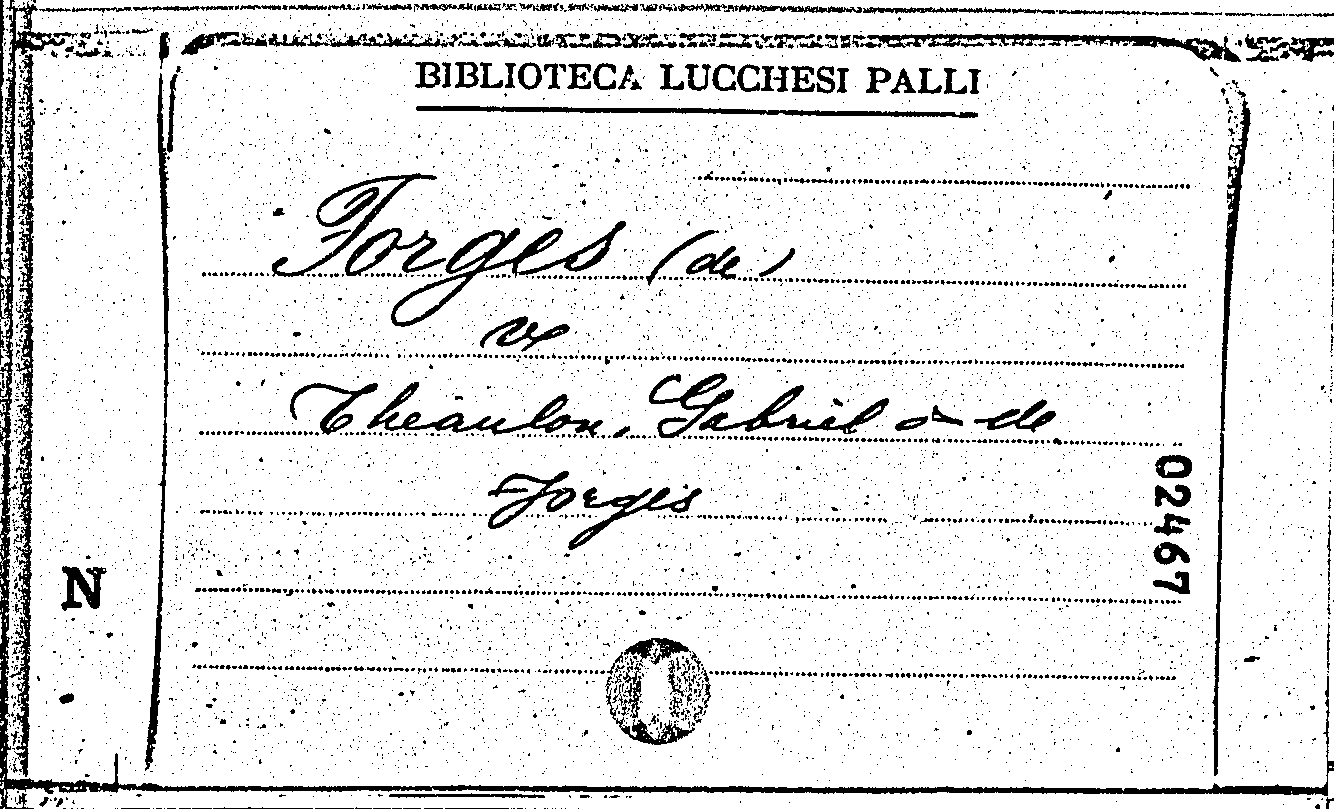 BIBLIOTECA LUCCHESI PALLI
Forges (de)
Theaulon, Gabriel de
Forges
02467
N